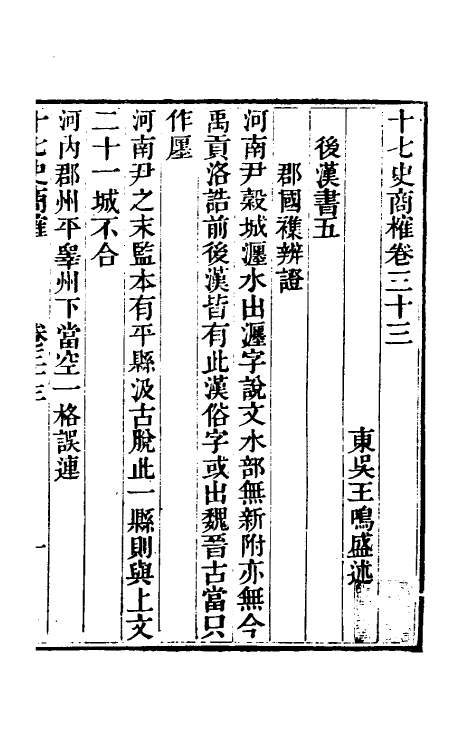 十七史商榷卷三十三
東吳王鳴盛述
後漢書五
郡國襍辨證
河南尹穀城瀍水出瀍字說文水部無新附亦無今
禹貢洛誥前後漢皆有此漢俗字或出魏晉古當只
作廛
河南尹之末監本有平縣汲古脫此一縣則與上文
二十一城不合
河內郡州平睪州下當空一格誤連
十七史商榷 卷三十三 一